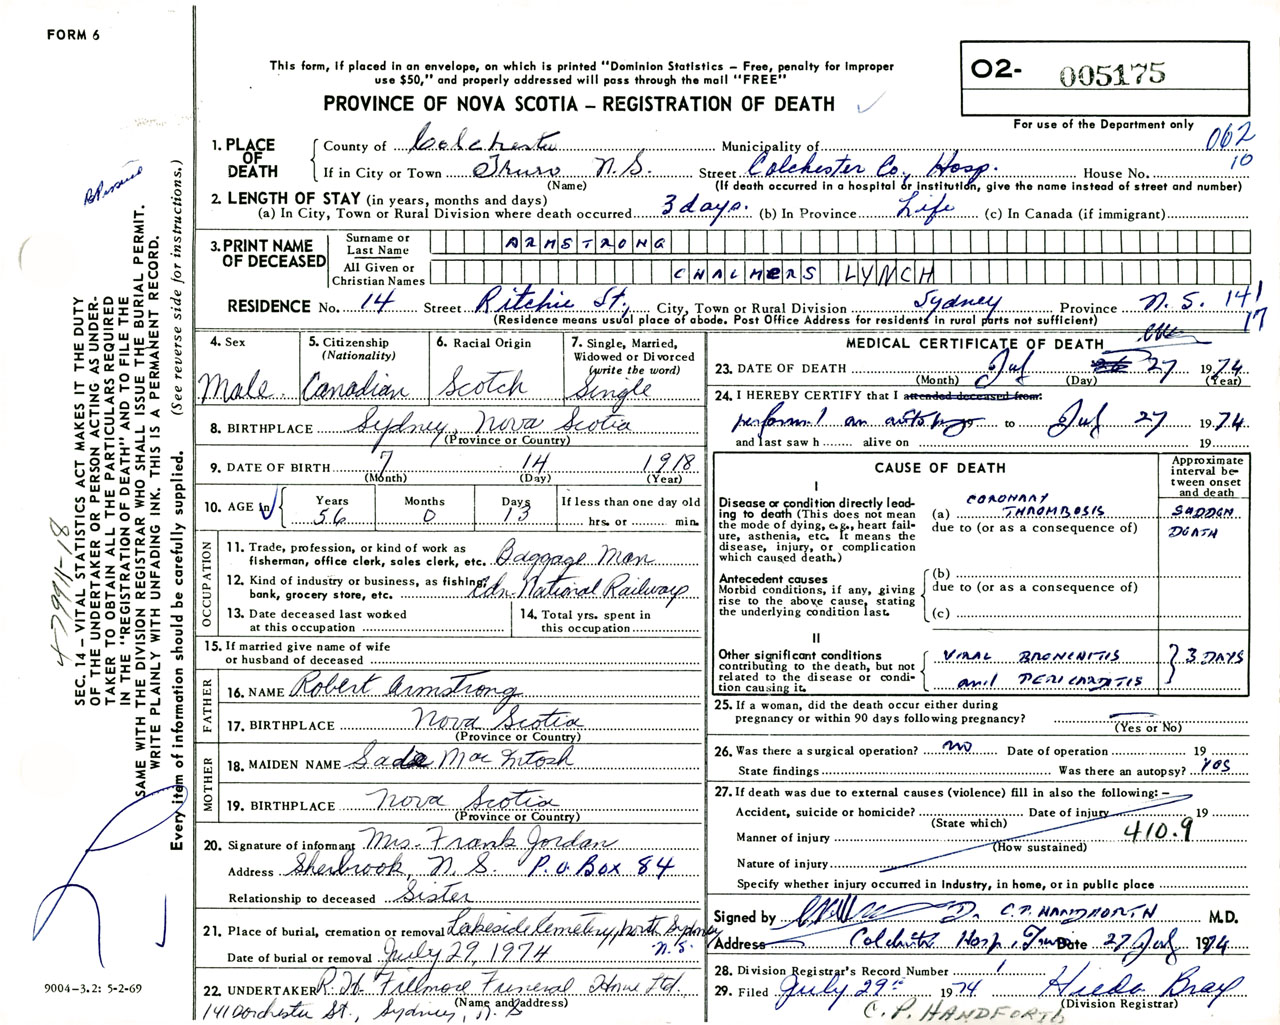 FORM 6
This form, if placed in an envelope, on which is printed "Dominion Statistics – Free, penalty for improper
use $50," and properly addressed will pass through the mail "FREE"
PROVINCE OF NOVA SCOTIA – REGISTRATION OF DEATH
O2- 005175
For use of the Department only
062
10
1. PLACE OF DEATH
County of Colchester Municipality of
If in City or Town Truro N.S. Street Colchester Co. Hosp. House No.
(Name) (If death occurred in a hospital or institution, give the name instead of street and number)
2. LENGTH OF STAY (in years, months and days)
(a) In City, Town or Rural Division where death occurred 3 days. (b) In Province Life (c) In Canada (if immigrant)
3. PRINT NAME OF DECEASED
Surname or Last Name ARMSTRONG
All Given or Christian Names CHALMERS LYNCH
RESIDENCE No. 14 Street Ritchie St., City, Town or Rural Division Sydney Province N.S. 141
17
(Residence means usual place of abode. Post Office Address for residents in rural parts not sufficient)
4. Sex
Male.
5. Citizenship
(Nationality)
Canadian
6. Racial Origin
Scotch
7. Single, Married,
Widowed or Divorced
(write the word)
Single
8. BIRTHPLACE Sydney, Nova Scotia
(Province or Country)
9. DATE OF BIRTH 7 14 1918
(Month) (Day) (Year)
10. AGE in
Years 56
Months 0
Days 13
If less than one day old
hrs. or min.
OCCUPATION
11. Trade, profession, or kind of work as
fisherman, office clerk, sales clerk, etc. Baggage Man
12. Kind of industry or business, as fishing,
bank, grocery store, etc. Cdn. National Railways
13. Date deceased last worked
at this occupation
14. Total yrs. spent in
this occupation
15. If married give name of wife
or husband of deceased
FATHER
16. NAME Robert Armstrong
17. BIRTHPLACE Nova Scotia
(Province or Country)
MOTHER
18. MAIDEN NAME Sadie MacIntosh
19. BIRTHPLACE Nova Scotia
(Province or Country)
20. Signature of informant Mrs. Frank Jordan
Address Sherbrook, N.S. P.O Box 84
Relationship to deceased Sister
21. Place of burial, cremation or removal Lakeside Cemetery, North Sydney
N.S.
Date of burial or removal July 29, 1974
22. UNDERTAKER R.W. Fillmore Funeral Home Ltd.,
(Name and address)
141 Dorchester St., Sydney, N.S
MEDICAL CERTIFICATE OF DEATH
23. DATE OF DEATH Jul 27 1974
(Month) (Day) (Year)
24. I HEREBY CERTIFY that I attended deceased from:
perform'd an autopsy to Jul 27 1974
and last saw h alive on 19
CAUSE OF DEATH
Approximate interval between onset and death
I
Disease or condition directly leading to death (This does not mean the mode of dying, e.g., heart failure, asthenia, etc. It means the disease, injury, or complication which caused death.)
(a) CORONARY THROMBOSIS SUDDEN DEATH
due to (or as a consequence of)
Antecedent causes
Morbid conditions, if any, giving rise to the above cause, stating the underlying condition last.
(b)
due to (or as a consequence of)
(c)
II
Other significant conditions
contributing to the death, but not related to the disease or condition causing it.
VIRAL BRONCHITIS
and PERICARDITIS
3 DAYS
25. If a woman, did the death occur either during
pregnancy or within 90 days following pregnancy?
(Yes or No)
26. Was there a surgical operation? no Date of operation 19
State findings Was there an autopsy? YES
27. If death was due to external causes (violence) fill in also the following: –
Accident, suicide or homicide? Date of injury 19
(State which)
410.9
Manner of injury
(How sustained)
Nature of injury
Specify whether injury occurred in industry, in home, or in public place
Signed by Dr. C.P. HANDFORTH M.D.
Address Colchester Hosp, Truro Date 27 Jul 1974
28. Division Registrar's Record Number 1
29. Filed July 29th 1974 Hilda Bray
(Division Registrar)
C.P. HANDFORTH
SEC. 14 – VITAL STATISTICS ACT MAKES IT THE DUTY
OF THE UNDERTAKER OR PERSON ACTING AS UNDER-
TAKER TO OBTAIN ALL THE PARTICULARS REQUIRED
IN THE "REGISTRATION OF DEATH" AND TO FILE THE
SAME WITH THE DIVISION REGISTRAR WHO SHALL ISSUE THE BURIAL PERMIT.
WRITE PLAINLY WITH UNFADING INK. THIS IS A PERMANENT RECORD.
Every item of information should be carefully supplied. (See reverse side for instructions.)
9004-3.2: 5-2-69